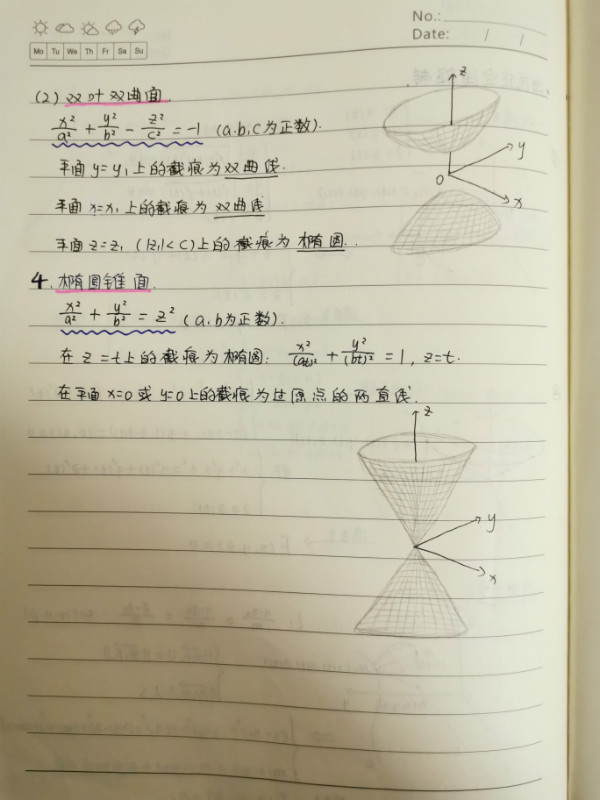 No.:
Date: / /
Mo Tu We Th Fr Sa Su
(2) 双叶双曲面.
x²/a² + y²/b² - z²/c² = -1 (a.b.c为正数).
平面 y=y₁上的截痕为双曲线.
平面 x=x₁上的截痕为双曲线
平面 z=z₁ (|z₁|<c)上的截痕为椭圆.
4. 椭圆锥面.
x²/a² + y²/b² = z² (a.b为正数).
在 z=t上的截痕为椭圆: x²/(at)² + y²/(bt)² = 1, z=t.
在平面 x=0 或 y=0上的截痕为过原点的两直线.
z
y
O
x
z
y
x